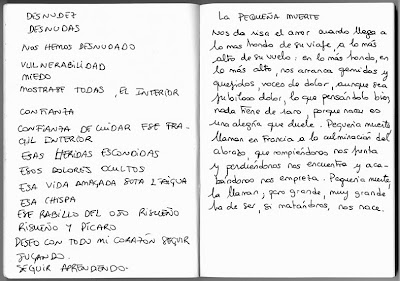 DESNUDEZ
DESNUDAS
NOS HEMOS DESNUDADO
VULNERABILIDAD
MIEDO
MOSTRARSE TODAS, EL INTERIOR
CONFIANZA
CONFIANZA DE CUIDAR ESE FRA-
GIL INTERIOR
ESAS HERIDAS ESCONDIDAS
ESOS DOLORES OCULTOS
ESA VIDA AMAGADA SOTA L'AIGUA
ESA CHISPA
ESE RABILLO DEL OJO RISUEÑO
RISUEÑO Y PÍCARO
DESEO CON TODO MI CORAZÓN SEGUIR
JUGANDO.
SEGUIR APRENDENDO.
LA PEQUEÑA MUERTE
Nos da risa el amor cuando llega a
lo mas hondo de su viaje, a lo más
alto de su vuelo: en lo más hondo, en
lo más alto, nos arranca gemidos y
quejidos, voces de dolor, aunque sea
jubiloso dolor, lo que pensándolo bien
nada tiene de raro, porque nacer es
una alegría que duele. Pequeña muerte
llaman en Francia a la culminación del
abrazo, que rompiéndonos nos junta
y perdiéndonos nos encuentra y aca-
bándonos nos empieza. Pequeña muerte,
la llaman; pero grande, muy grande
ha de ser, si matándonos, nos nace.